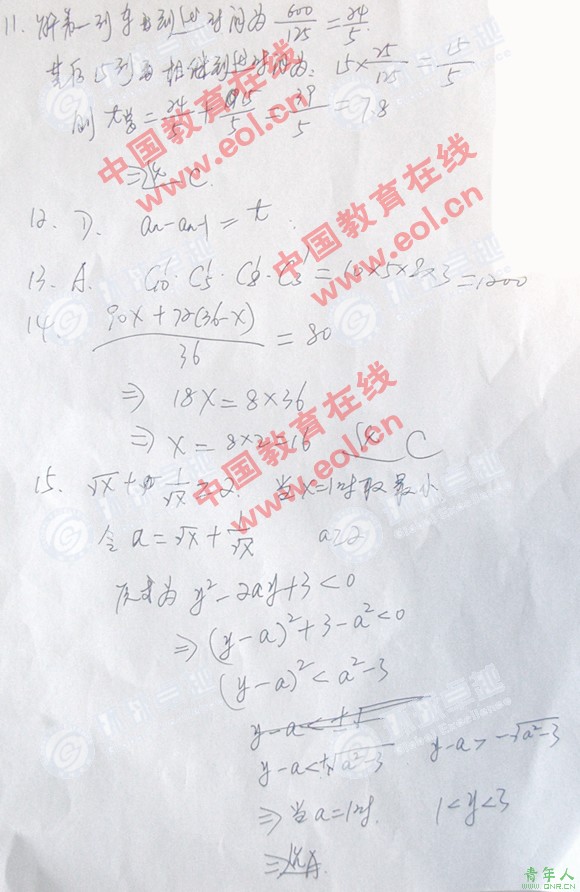 11. 解第一列车到达时间为 600/125 = 24/5.
其后15列相继到达时间为: 15×25/125 = 15/5
则 = 24/5 + 15/5 = 39/5 = 7.8
⇒选 C.
12. D. an-an-1 = t.
13. A. C10^1·C5^1·C8^1·C3^1 = 10×5×8×3=1200
14. (90x+72(36-x))/36 = 80
⇒ 18x=8×36
⇒ x = 8×2=16 选 C
15. √x + 1/√x ≥ 2. 当x=1时取最小
令 a=√x + 1/√x a≥2
原式为 y²-2ay+3<0
⇒(y-a)²+3-a²<0
(y-a)²<a²-3
y-a<±1
y-a<+√(a²-3) y-a>-√(a²-3)
⇒当a=1时. 1<y<3
⇒选A.
中国教育在线
www.eol.cn
中国教育在线
www.eol.cn
中国教育在线
www.eol.cn
青年人
WWW.QNR.CN